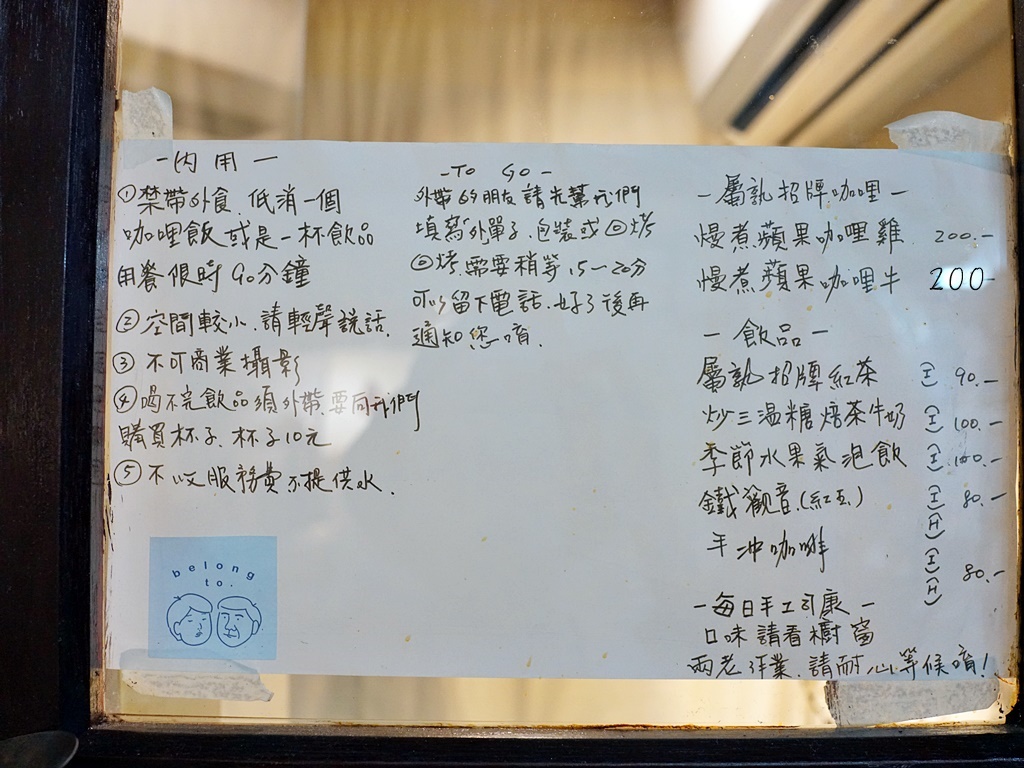 -內用-
①禁帶外食.低消一個
咖哩飯或是一杯飲品
用餐限時90分鐘
②空間較小.請輕聲說話.
③不可商業攝影
④喝不完飲品須外帶.要向我們
購買杯子.杯子10元
⑤不收服務費不提供水.
belong
to.
-TO GO-
外帶的朋友請先幫我們
填寫外單子.包裝或回烤
回烤.需要稍等.15-20分
可以留下電話.好了後再
通知您唷.
-屬孰招牌咖哩-
慢煮蘋果咖哩雞 200.-
慢煮蘋果咖哩牛 200-
-飲品-
屬孰招牌紅茶 (I) 90.-
炒三溫糖焙茶牛奶 (I) 100.-
季節水果氣泡飲 (I) 100.-
鐵觀音.(紅玉.) (I) (H) 80.-
手沖咖啡 (I) (H) 80.-
-每日手工司康-
口味請看櫥窗
兩老作業.請耐心等候唷!